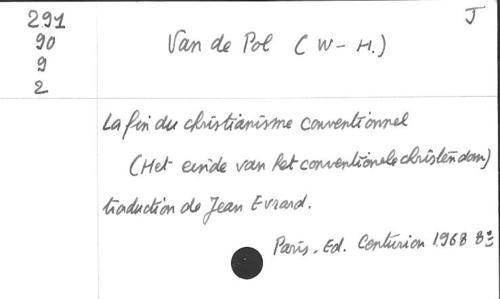 291
90
9
2
J
Van de Pol (W-H.)
La fin du christianisme conventionnel
(Het einde van het conventionele christendom)
traduction de Jean Evrard.
Paris. Ed. Centurion 1968 8º